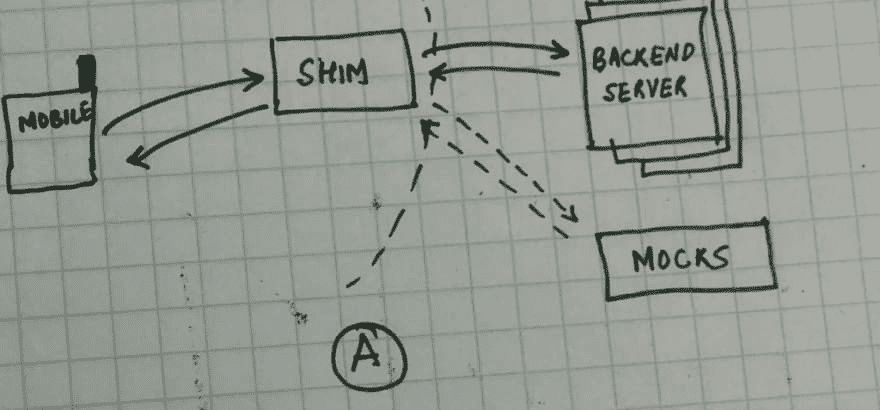 MOBILE
SHIM
BACKEND
SERVER
MOCKS
A